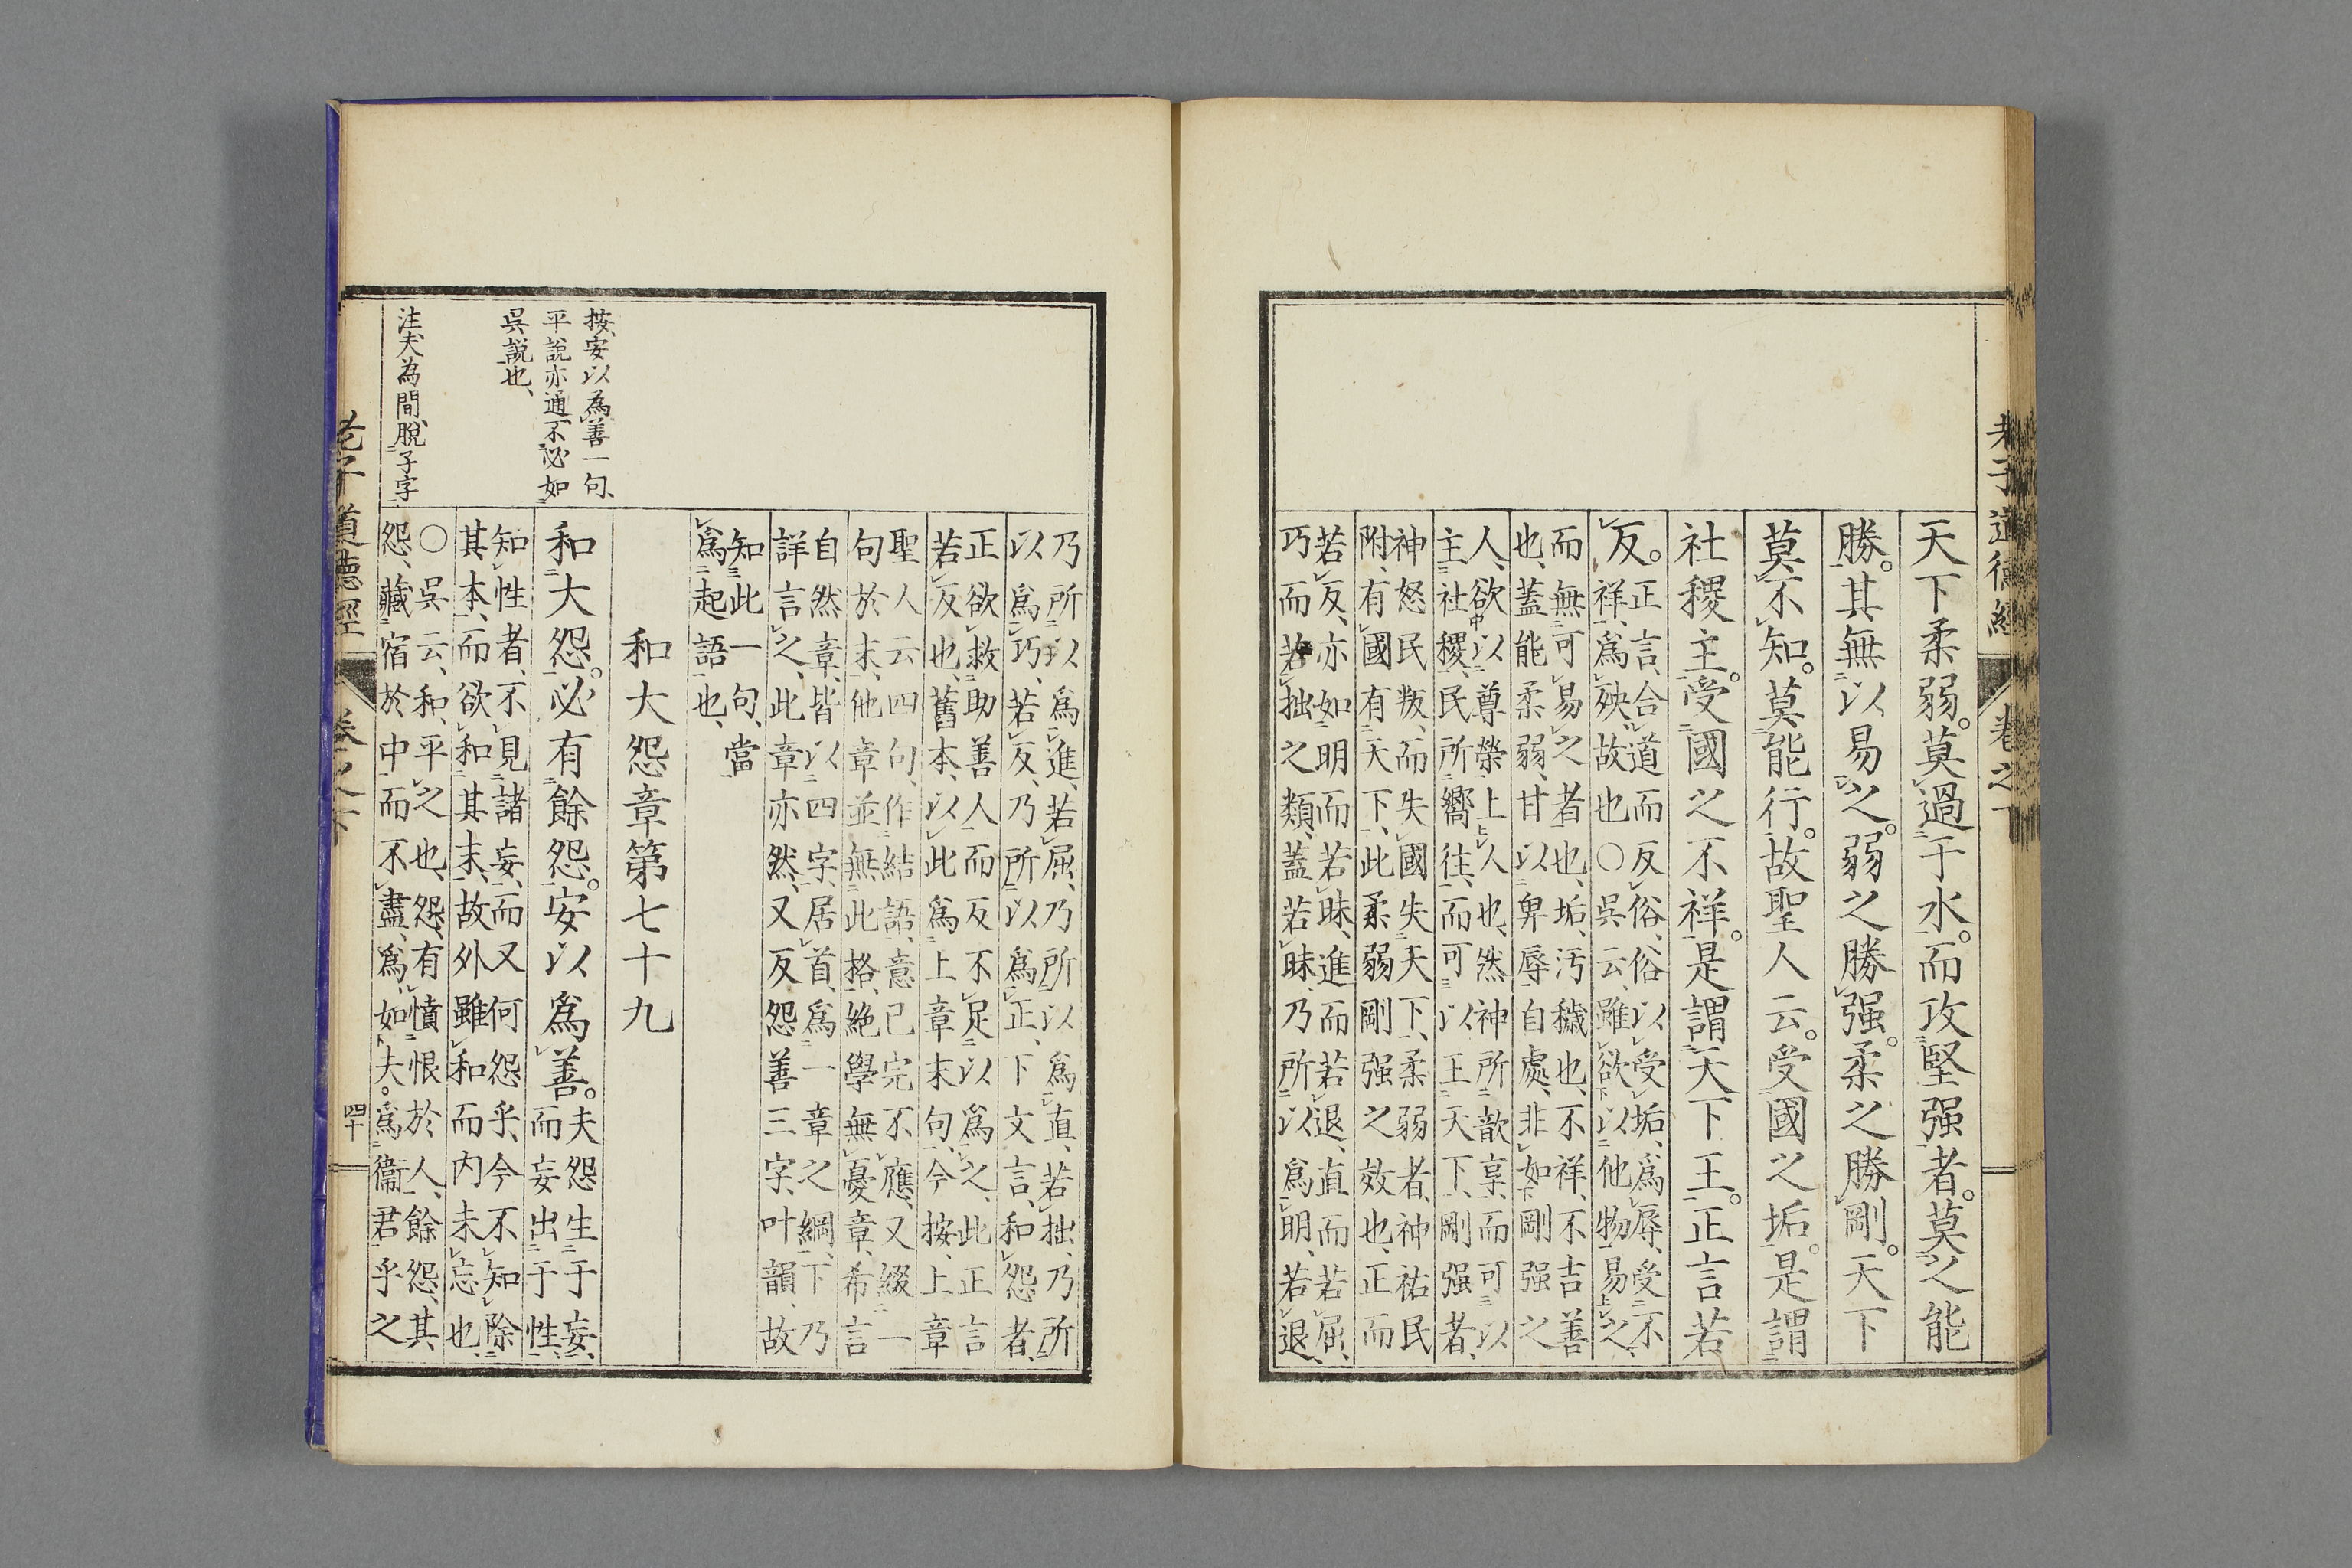 老子道德經
卷之下
天下柔弱。莫過于水。而攻堅强者。莫之能
勝。其無以易之。弱之勝强。柔之勝剛。天下
莫不知。莫能行。故聖人云。受國之垢。是謂
社稷主。受國之不祥。是謂天下王。正言若
反。
正言、合道而反俗、俗以受垢、爲辱、受不
祥、爲殃、故也〇吳云、雖欲以他物易之、
而無可易之者也、垢、汚穢也、不祥、不吉善
也、蓋能柔弱、甘以卑辱自處、非如剛强之
人、欲以尊榮上人也、然神所歆享、而可以
主社稷、民所嚮往、而可以王天下、剛强者、
神怒民叛、而失國失天下、柔弱者、神祐民
附、有國有天下、此柔弱剛强之效也、正而
若反、亦如明而若昧、進而若退、直而若屈、
巧而若拙之類、蓋若昧、乃所以爲明、若退、
乃所以爲進、若屈、乃所以爲直、若拙、乃所
以爲巧、若反、乃所以爲正、下文言、和怨者、
正欲救助善人、而反不足以爲之、此正言
若反也、舊本、以此爲上章末句、今按、上章
聖人云四句、作結語、意已完、不應又綴一
句於末、他章並無此格、絶學無憂章、希言
自然章、皆以四字、居首、爲一章之綱、下乃
詳言之、此章亦然、又反怨善三字、叶韻、故
知此一句、當
爲起語也、
和大怨章第七十九
和大怨。必有餘怨。安以爲善。
夫怨生于妄、
而妄出于性、
知性者、不見諸妄、而又何怨乎、今不知除
其本、而欲和其末、故外雖和而内未忘也、
〇吳云、和、平之也、怨、有憤恨於人、餘怨、其
怨、藏宿於中而不盡、爲、如夫。爲衞君乎之
按、安以為善一句、
平說亦通、不必如
吳說也、
注夫為間、脫子字
老子道德經
卷之下
四十